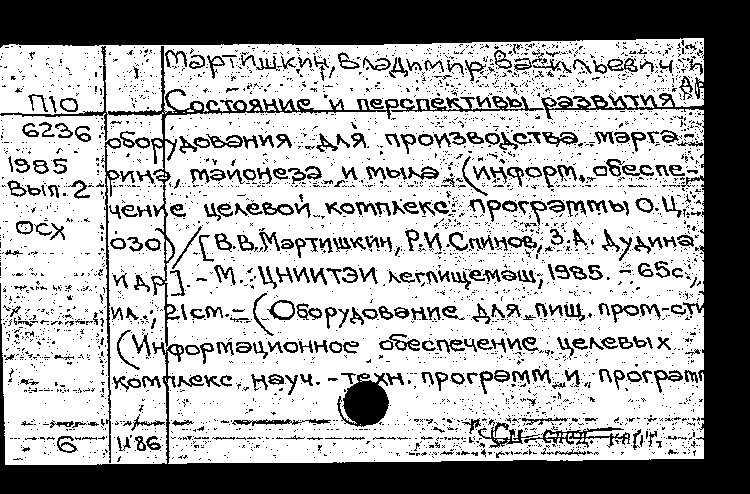 Мартишкин, Владимир Васильевич и
др
П10
Состояние и перспективы развития
6236
оборудования для производства марга-
1985
рина, майонеза и мыла (информ. обеспе-
Вып. 2
чение целевой комплекс программы О.Ц.
ОСХ
030) / [В.В. Мартишкин, Р.И. Спинов, З.А. Дудина
и др]. - М.: ЦНИИТЭИ легпищемаш, 1985. - 65с.,
ил., 21см. - (Оборудование для пищ. пром-сти
(Информационное обеспечение целевых
комплекс. науч.-техн. программ и програм
См. след. карт.
6 1186